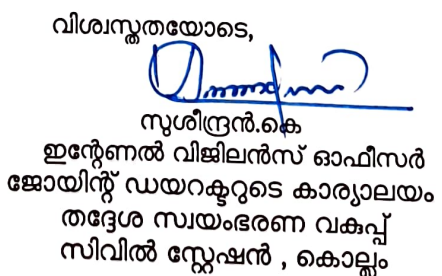 വിശ്വസ്തതയോടെ,
സുശീന്ദ്രൻ.കെ
ഇന്റേണൽ വിജിലൻസ് ഓഫീസർ
ജോയിന്റ് ഡയറക്ടറുടെ കാര്യാലയം
തദ്ദേശ സ്വയംഭരണ വകുപ്പ്
സിവിൽ സ്റ്റേഷൻ , കൊല്ലം